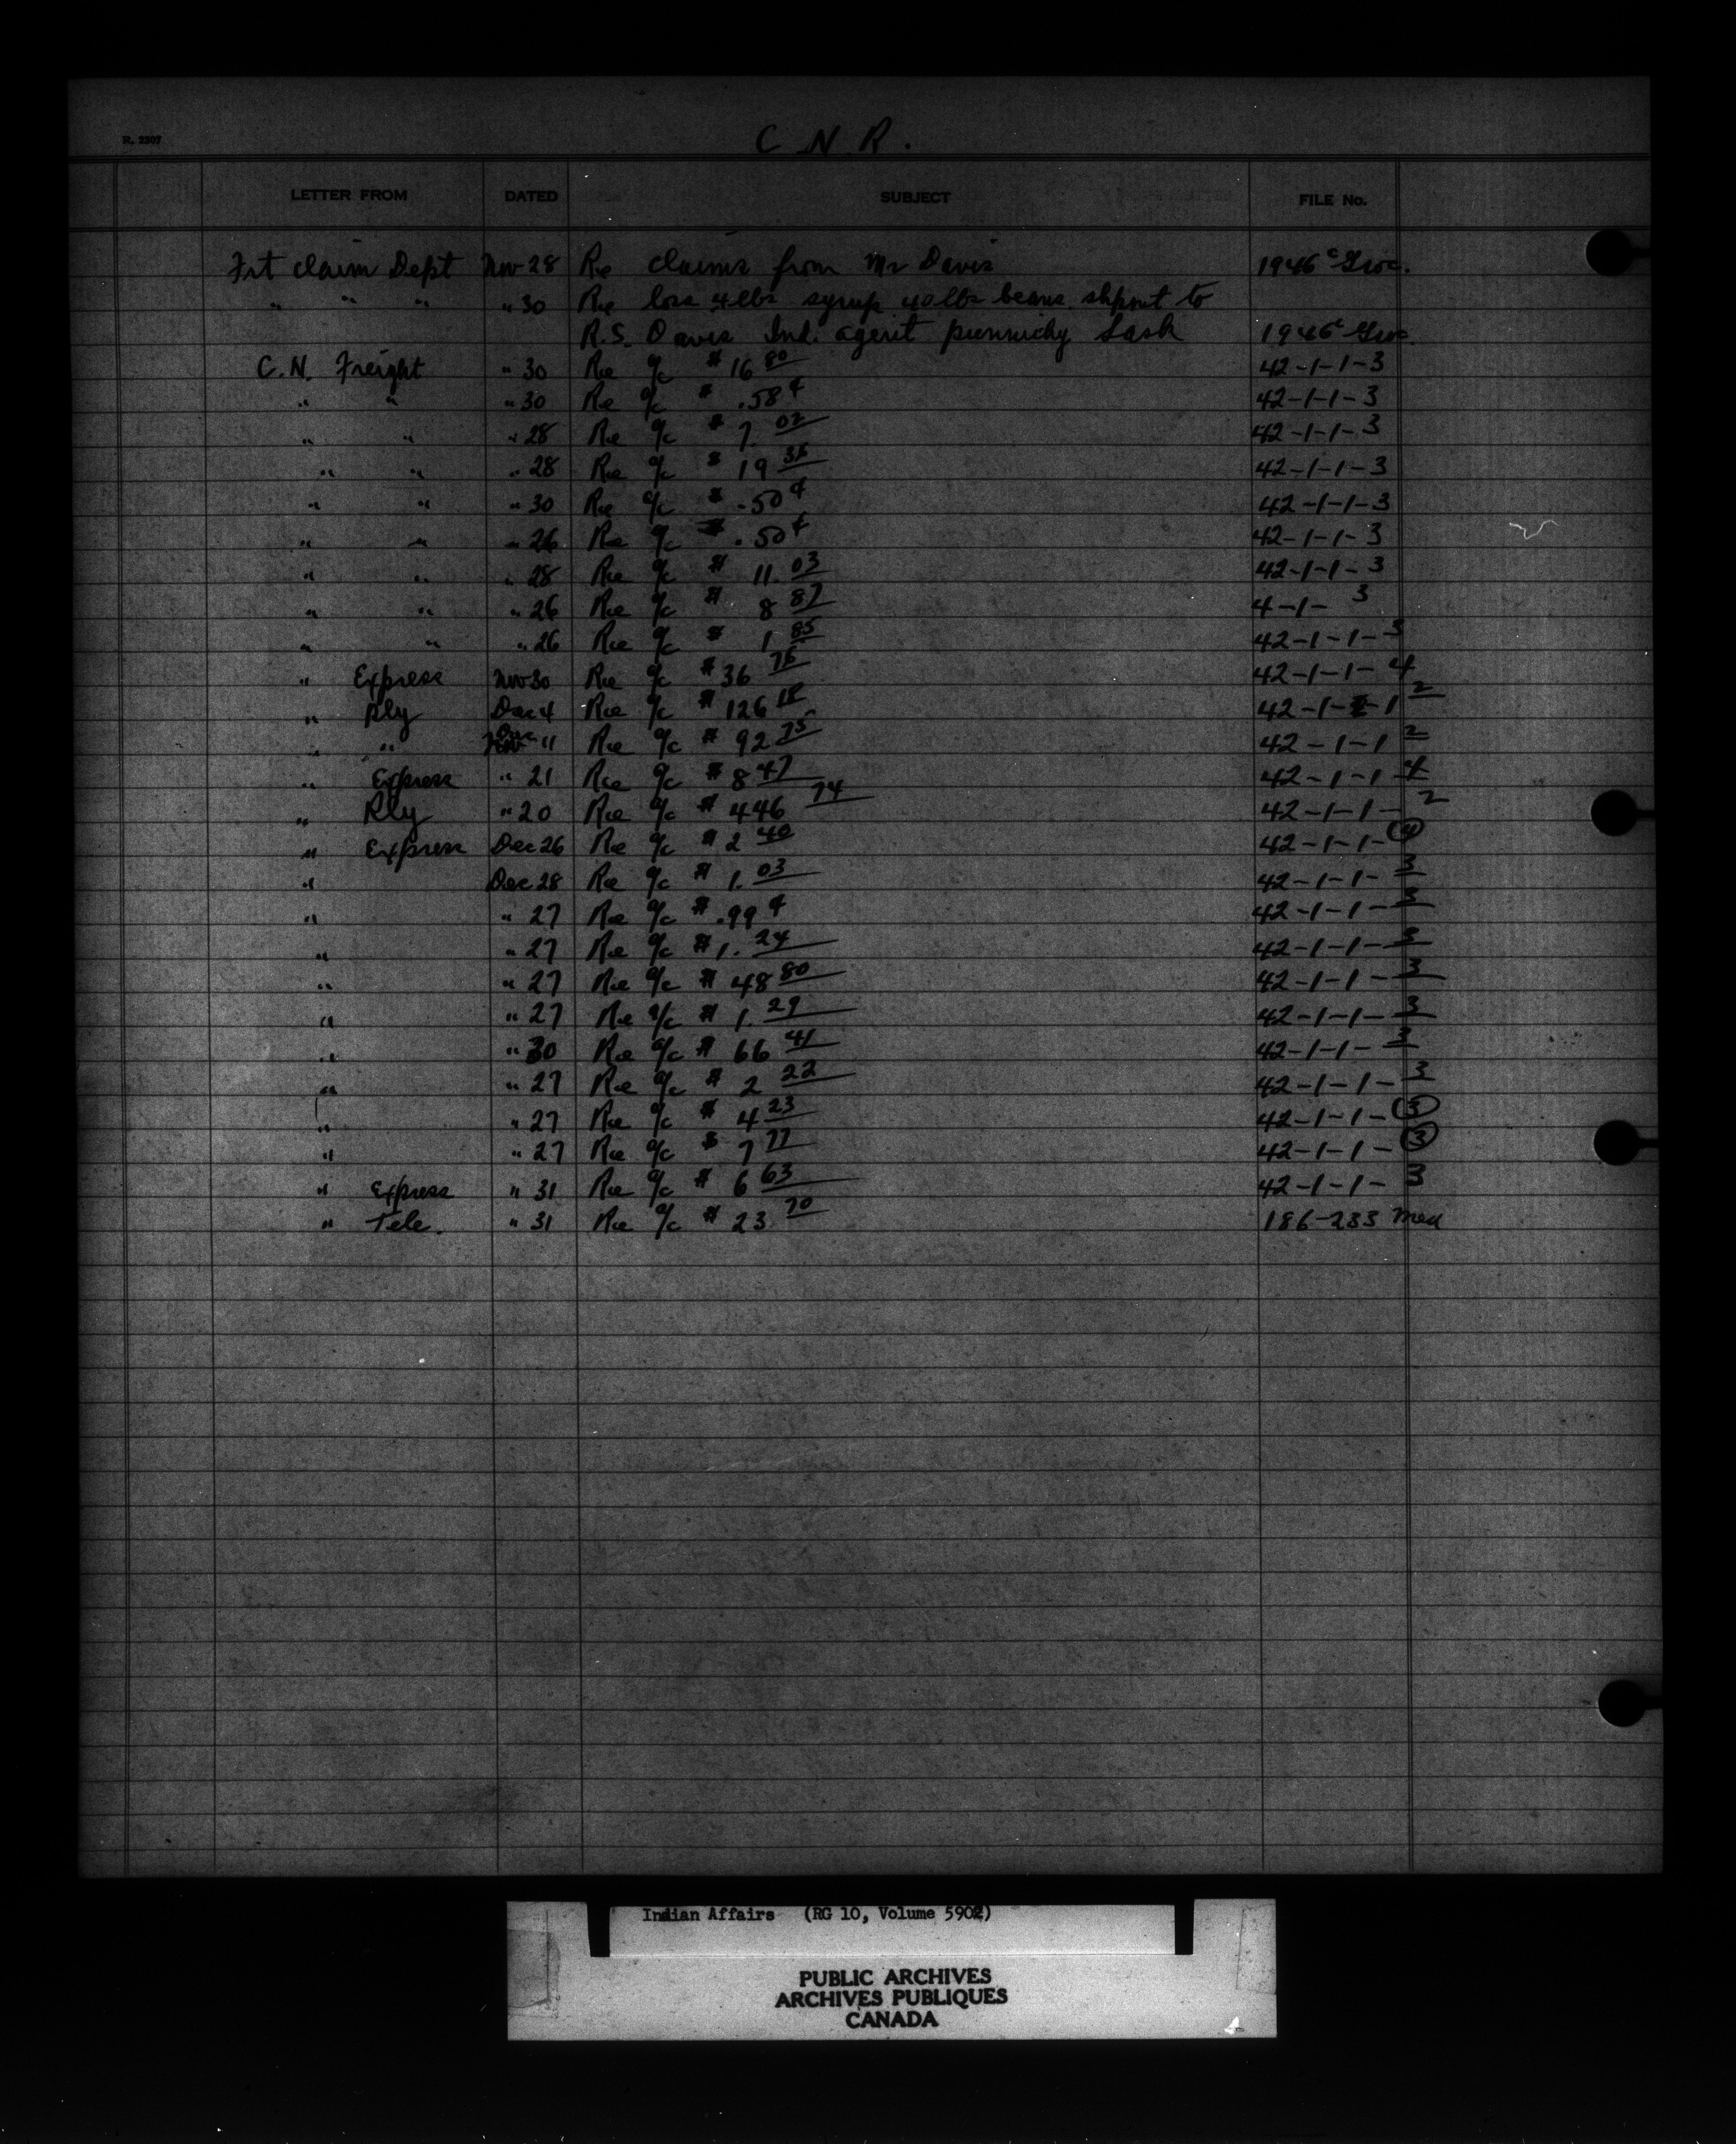 C N R.
R. 2307
LETTER FROM DATED SUBJECT FILE No.
Frt Claim Dept Nov 28 Re claims from Mr Davis 1946 c Groc.
" " " " 30 Re loss 4 lbs syrup 40 lbs beans shpmt to
R.S. Davis Ind. agent punnichy Sask 1946 c Groc.
C.N. Freight " 30 Re a/c $ 16 80 42-1-1-3
" " " 30 Re a/c $ .58 ¢ 42-1-1-3
" " " 28 Re a/c $ 7. 02 42-1-1-3
" " " 28 Re a/c $ 19 36 42-1-1-3
" " " 30 Re a/c $ .50 ¢ 42-1-1-3
" " " 26 Re a/c $ .50 ¢ 42-1-1-3
" " " 28 Re a/c $ 11. 03 42-1-1-3
" " " 26 Re a/c $ 8 87 4-1- 3
" " " 26 Re a/c $ 1 85 42-1-1-3
" Express Nov 30 Re a/c $ 36 76 42-1-1-4
" Rly Dec 4 Re a/c $ 126 18 42-1-1-1 2
" " Dec 11 Re a/c $ 92 75 42-1-1 2
" Express " 21 Re a/c $ 8 47 42-1-1-4
" Rly " 20 Re a/c $ 446 74 42-1-1-2
" Express Dec 26 Re a/c $ 2 40 42-1-1-4
" Dec 28 Re a/c $ 1. 03 42-1-1-3
" " 27 Re a/c $ .99 ¢ 42-1-1-3
" " 27 Re a/c $ 1. 24 42-1-1-3
" " 27 Re a/c $ 48 80 42-1-1-3
" " 27 Re a/c $ 1. 29 42-1-1-3
" " 30 Re a/c $ 66 41 42-1-1-3
" " 27 Re a/c $ 2 22 42-1-1-3
" " 27 Re a/c $ 4 23 42-1-1-3
" " 27 Re a/c $ 7 77 42-1-1-3
" Express " 31 Re a/c $ 6 63 42-1-1-3
" Tele. " 31 Re a/c $ 23 70 186-233 Med
Indian Affairs (RG 10, Volume 5902)
PUBLIC ARCHIVES
ARCHIVES PUBLIQUES
CANADA